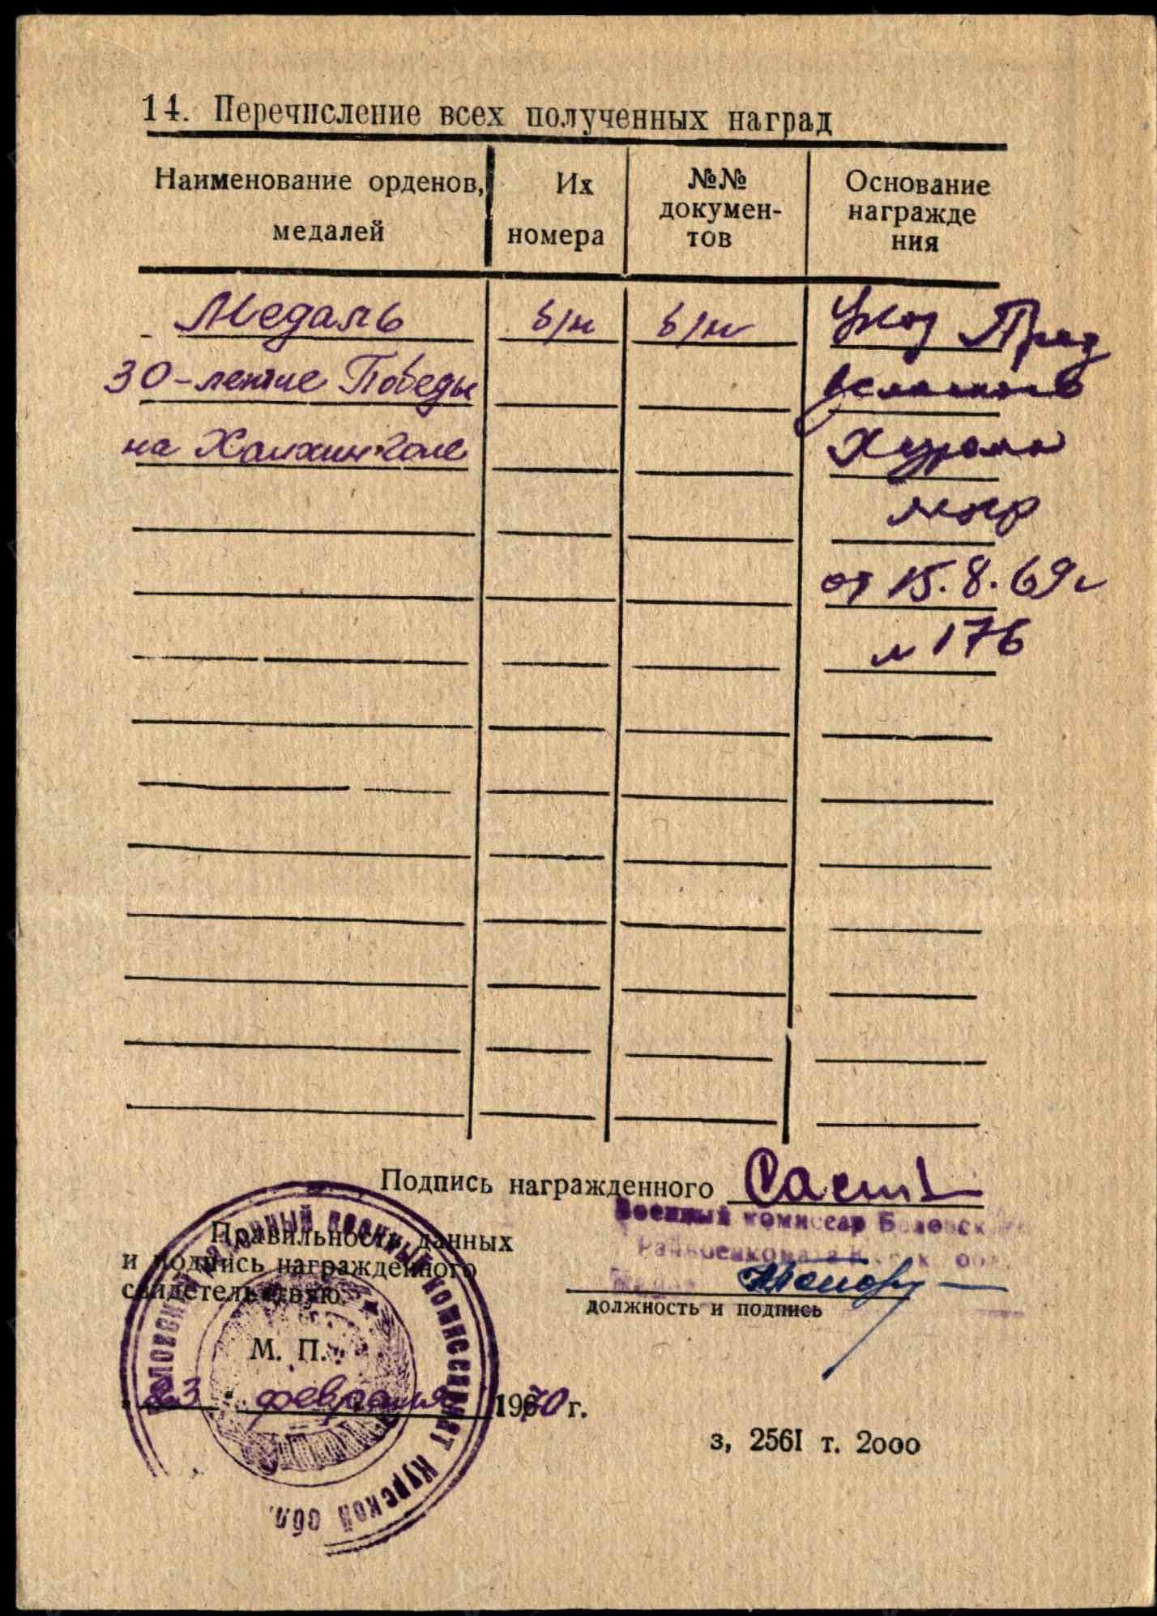 14. Перечисление всех полученных наград
Наименование орденов, медалей
Их номера
№№ докумен-
тов
Основание
награжде
ния
Медаль б/н б/н Указ През
30-летие Победы
на Халхин-Голе Хурала
МНР
от 15.8.69г
№ 176
Подпись награжденного
Военный комиссар Беловск
Райвоенкомата
Правильность данных
и подпись награжденного
свидетельствую.
должность и подпись
М. П.
23 февраля 1970 г.
з, 256I т. 2000
Беловский районный военный комиссариат Курской обл.